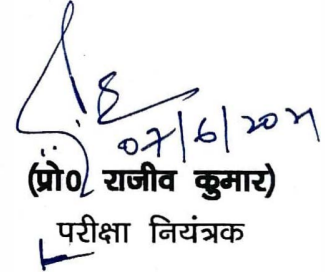 07/6/20
(प्रो0 राजीव कुमार)
परीक्षा नियंत्रक